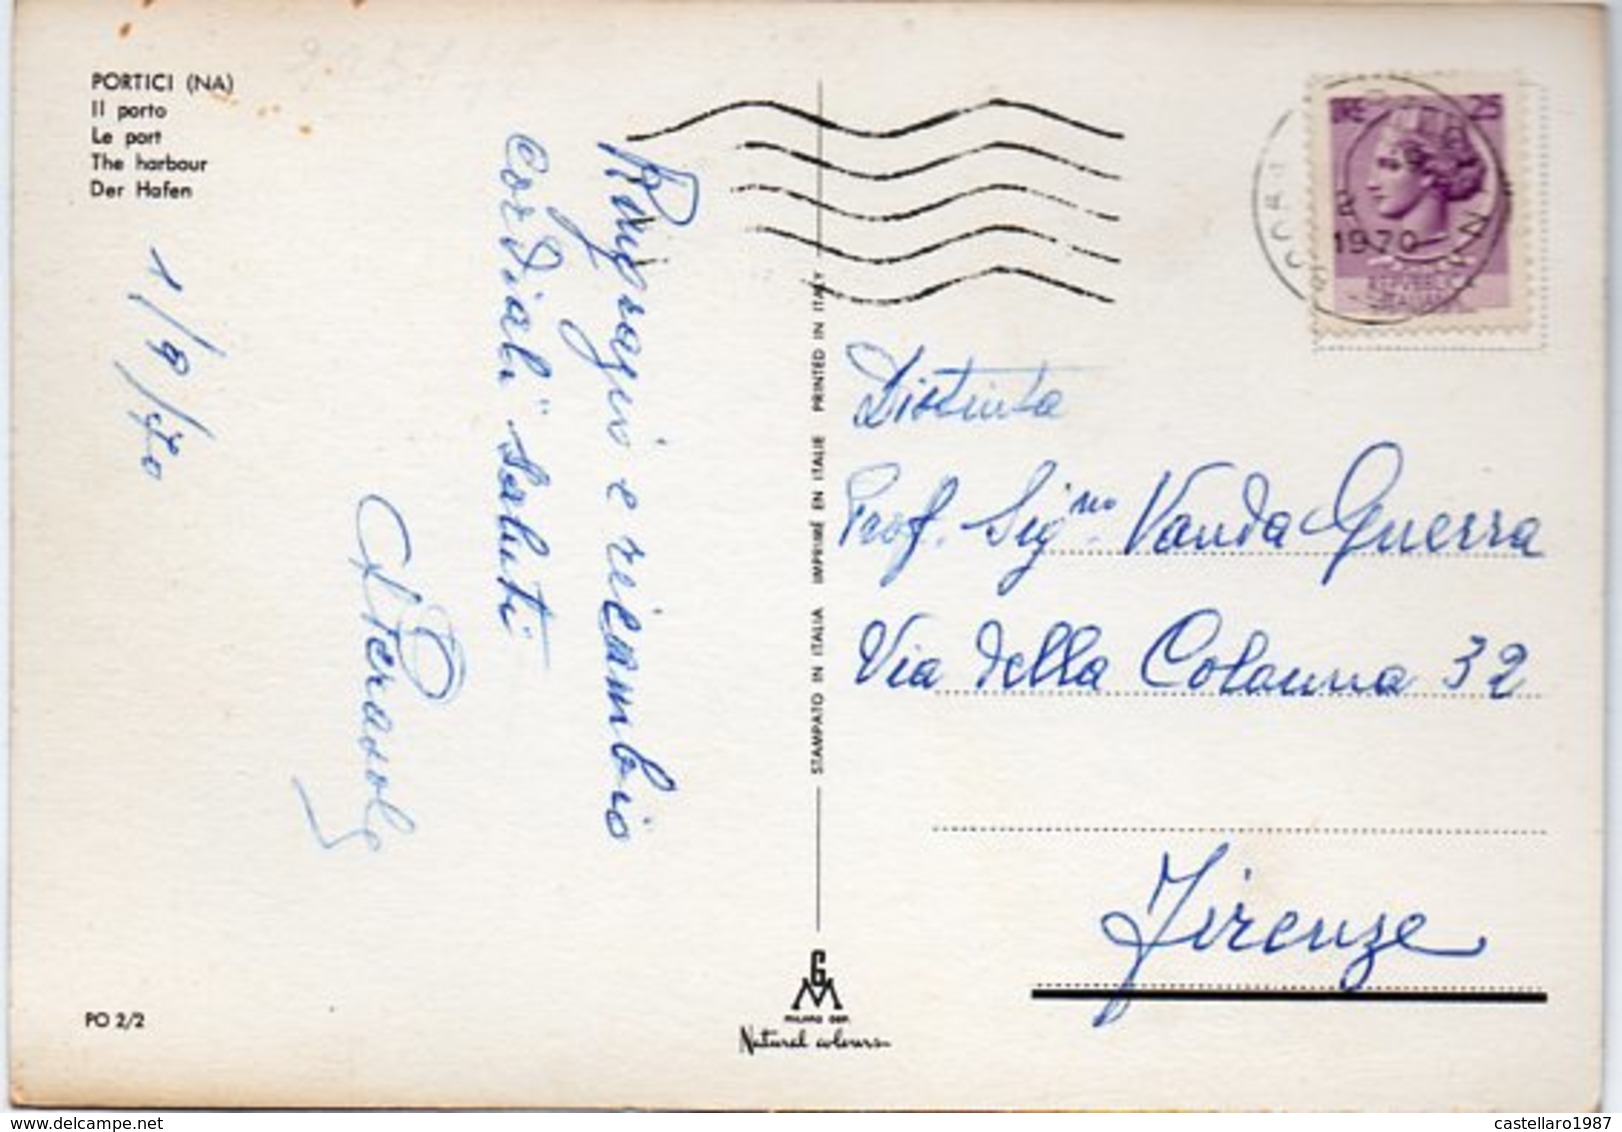 PORTICI (NA)
Il porto
Le port
The harbour
Der Hafen
1/9/70
Ringrazio e ricambio
cordiali saluti
STAMPATO IN ITALIA IMPRIMÉ EN ITALIE PRINTED IN ITALY
LIRE 25
1970
REPVBBLICA
ITALIANA
Distinta
Prof. Sig.na Vanda Guerra
Via della Colonna 32
Firenze
PO 2/2
G
M
MILANO DEP.
Natural colours
castellaro1987